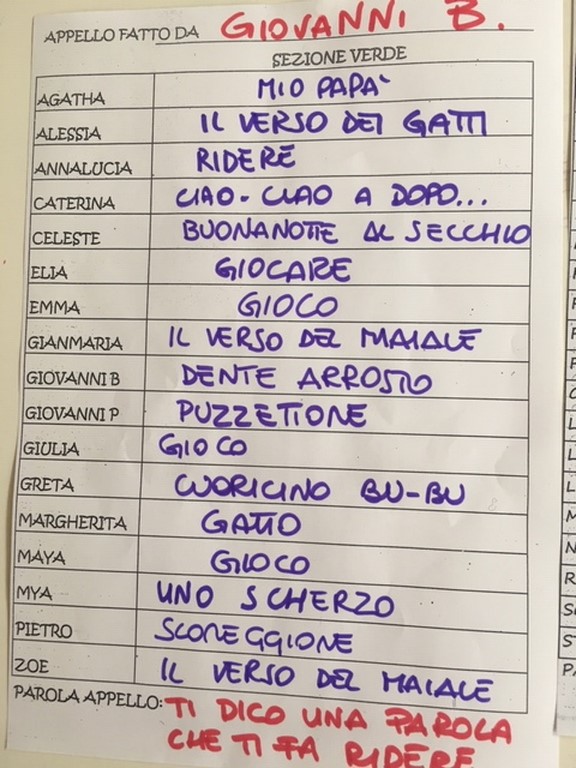 APPELLO FATTO DA GIOVANNI B.
SEZIONE VERDE
AGATHA MIO PAPA'
ALESSIA IL VERSO DEI GATTI
ANNALUCIA RIDERE
CATERINA CIAO-CIAO A DOPO...
CELESTE BUONANOTTE AL SECCHIO
ELIA GIOCARE
EMMA GIOCO
GIANMARIA IL VERSO DEL MAIALE
GIOVANNI B DENTE ARROSTO
GIOVANNI P PUZZETTONE
GIULIA GIOCO
GRETA CUORICINO BU-BU
MARGHERITA GATTO
MAYA GIOCO
MYA UNO SCHERZO
PIETRO SCOREGGIONE
ZOE IL VERSO DEL MAIALE
PAROLA APPELLO: TI DICO UNA PAROLA
CHE TI FA RIDERE